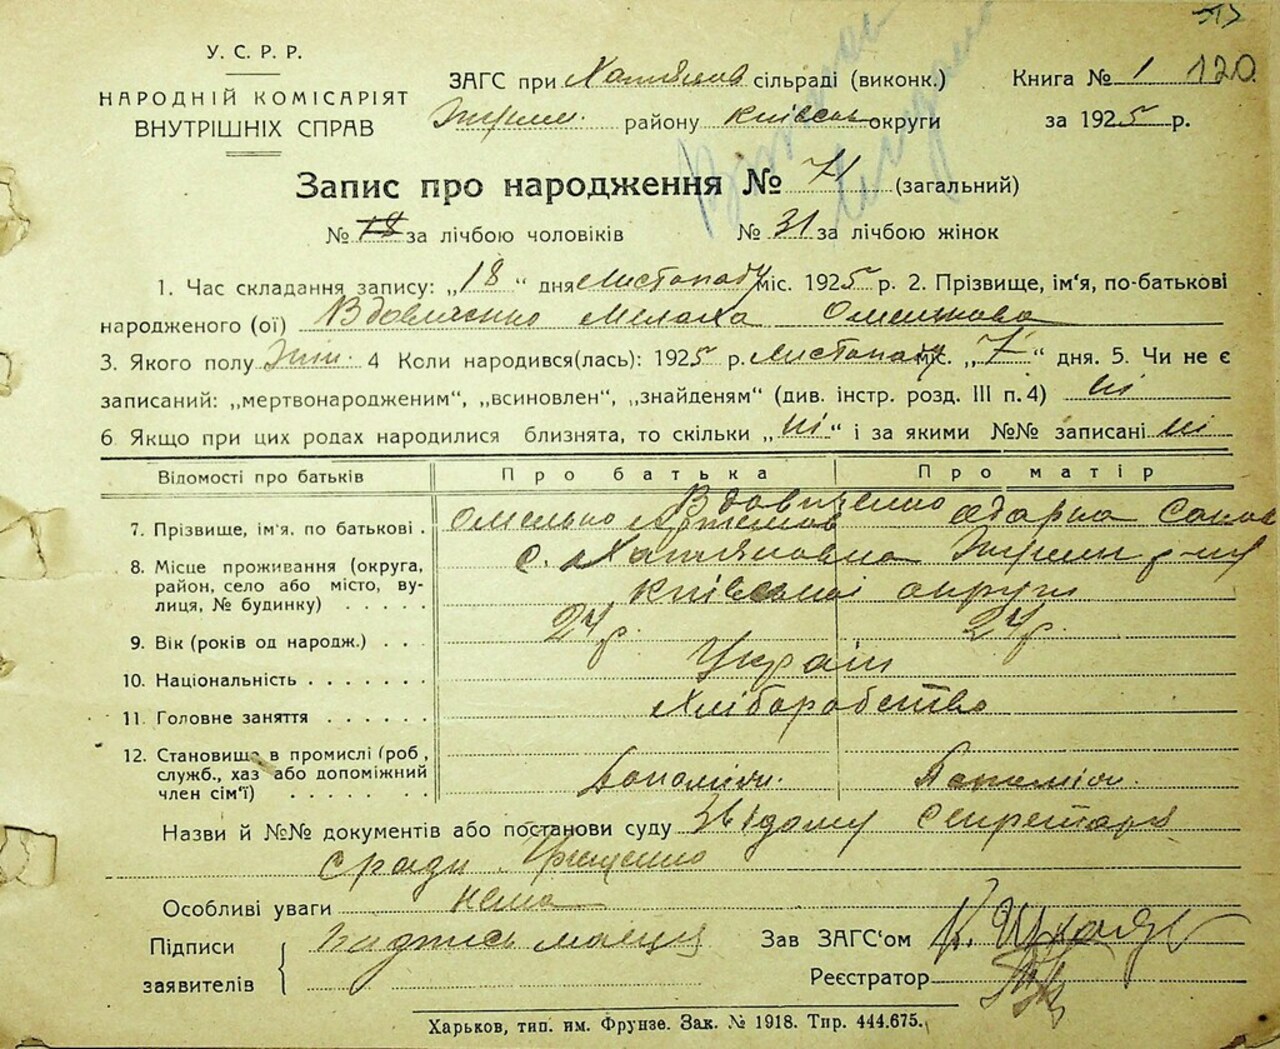 У. С. Р. Р.
НАРОДНІЙ КОМІСАРІЯТ
ВНУТРІШНІХ СПРАВ
ЗАГС при сільраді (виконк.)
району округи
Книга № 1 120
за 1925 р.
Запис про народження № 71 (загальний)
№ 18 за лічбою чоловіків № 31 за лічбою жінок
1. Час складання запису: „18“ дня Листопаду міс. 1925 р. 2. Прізвище, ім'я, по-батькові
народженого (ої) Вдовиченко
3. Якого полу Жін. 4 Коли народився(лась): 1925 р. Листопаду міс. „7“ дня. 5. Чи не є
записаний: „мертвонародженим“, „всиновлен“, „знайденям“ (див. інстр. розд. III п. 4) ні
6. Якщо при цих родах народилися близнята, то скільки „ні“ і за якими №№ записані ні
Відомості про батьків Про батька Про матір
Вдовиченко
7. Прізвище, ім'я, по батькові . Омелько Артемов Одарка
8. Місце проживання (округа,
район, село або місто, ву-
лиця, № будинку) . . . . .
с. Хотянівка
Київської округи
9. Вік (років од народж.) . . . 24 р. 24 р.
10. Національність . . . . . . . Україн
11. Головне заняття . . . . . . Хліборобство
12. Становище в промислі (роб,
служб., хаз або допоміжний
член сім'ї) . . . . . . .
Допоміжн. Допоміжн.
Назви й №№ документів або постанови суду З відому Секретаря
сради
Особливі уваги нема
Підписи
заявителів
Підпись
Зав ЗАГС'ом
Реєстратор
Харьков, тип. им. Фрунзе. Зак. № 1918. Тир. 444.675.